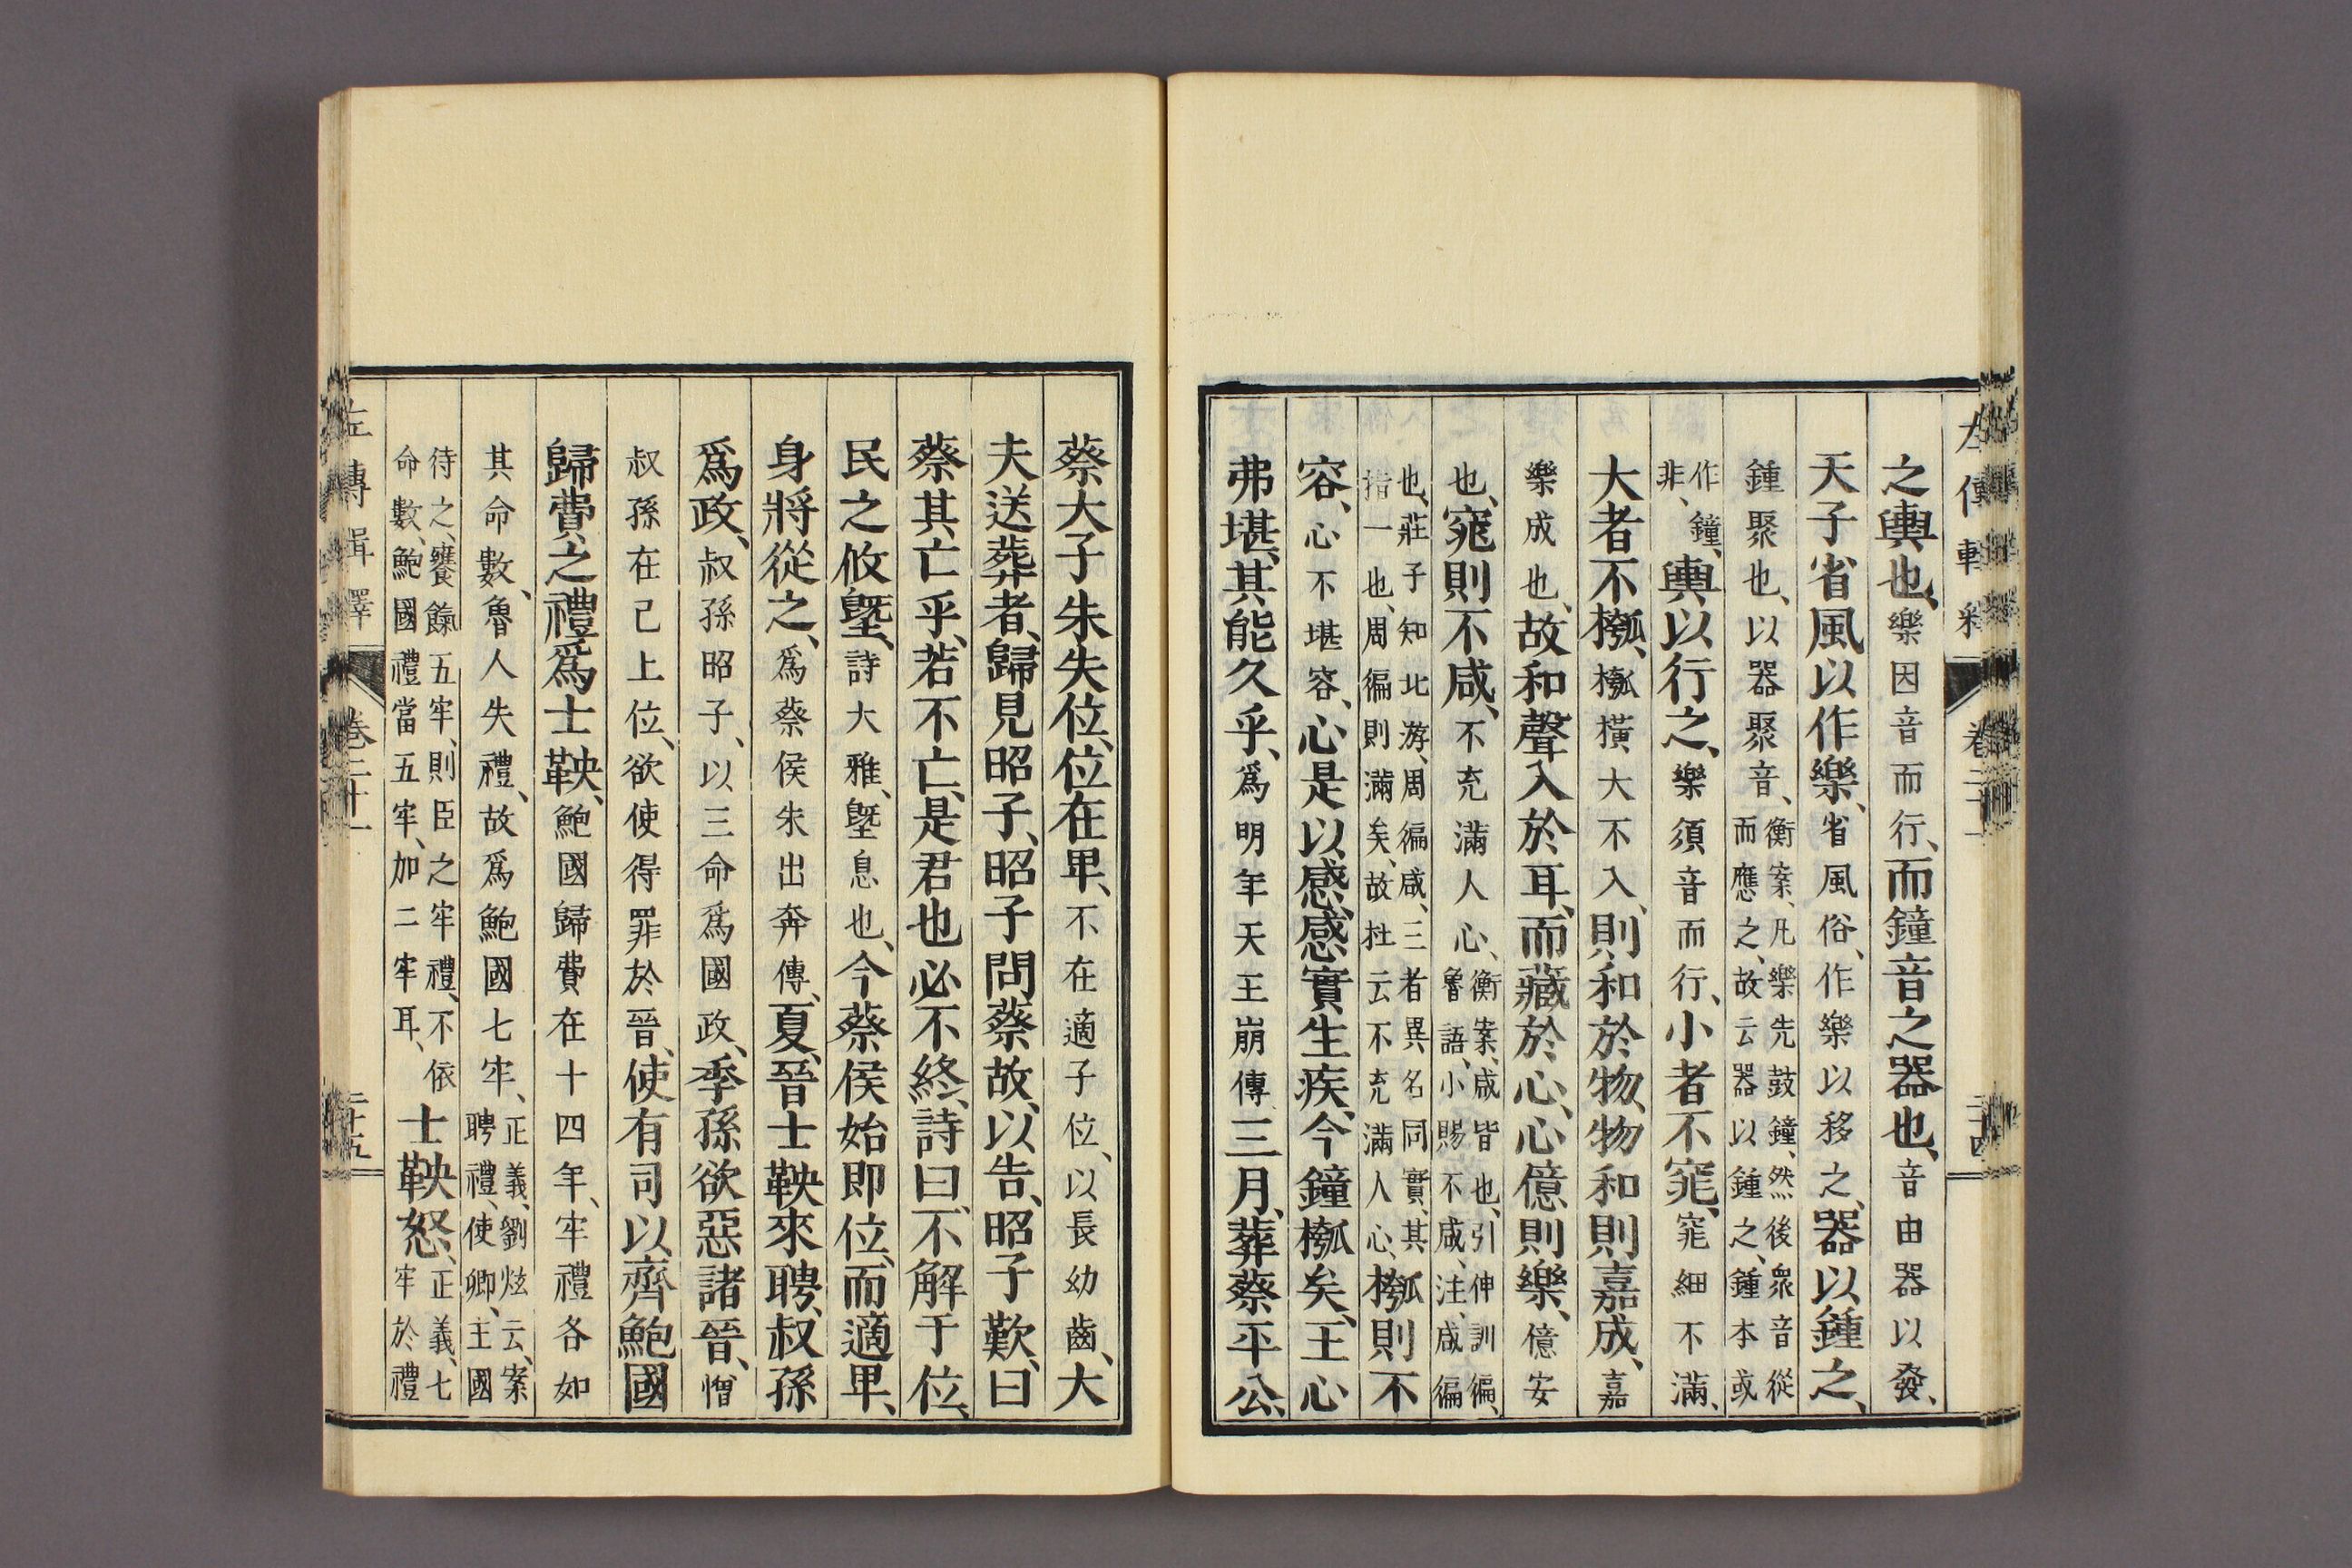 之輿也、樂因音而行、而鐘音之器也、音由器以發、
天子省風以作樂、省風俗、作樂以移之、器以鍾之、
鍾聚也、以器聚音、衡案、凡樂先鼓鐘、然後衆音從而應之、故云器以鍾之、鍾本或
作鐘、非、輿以行之、樂須音而行、小者不窕、窕細不滿、
大者不摦、摦橫大不入、則和於物、物和則嘉成、嘉
樂成也、故和聲入於耳、而藏於心、心億則樂、億安
也、窕則不咸、不充滿人心、衡案、咸皆也、引伸訓徧、魯語、小賜不咸、注、咸徧
也、莊子知北游、周徧咸、三者異名同實、其指一也、周徧則滿矣、故杜云不充滿人心、摦則不
容、心不堪容、心是以感、感實生疾、今鐘摦矣、王心
弗堪、其能久乎、爲明年天王崩傳三月、葬蔡平公、
左傳輯釋 卷二十一 二十四
蔡大子朱失位、位在卑、不在適子位、以長幼齒、大
夫送葬者、歸見昭子、昭子問蔡故、以告、昭子歎曰
蔡其亡乎、若不亡、是君也必不終、詩曰、不解于位、
民之攸墍、詩大雅、墍息也、今蔡侯始即位、而適卑、
身將從之、爲蔡侯朱出奔傳、夏、晉士鞅來聘、叔孫
爲政、叔孫昭子、以三命爲國政、季孫欲惡諸晉、憎
叔孫在己上位、欲使得罪於晉、使有司以齊鮑國
歸費之禮爲士鞅、鮑國歸費在十四年、牢禮各如
其命數、魯人失禮、故爲鮑國七牢、正義、劉炫云、案聘禮、使卿、主國
待之、饔餼五牢、則臣之牢禮、不依命數、鮑國禮當五牢、加二牢耳、士鞅怒、正義、七牢於禮
左傳輯釋 卷二十一 二十五